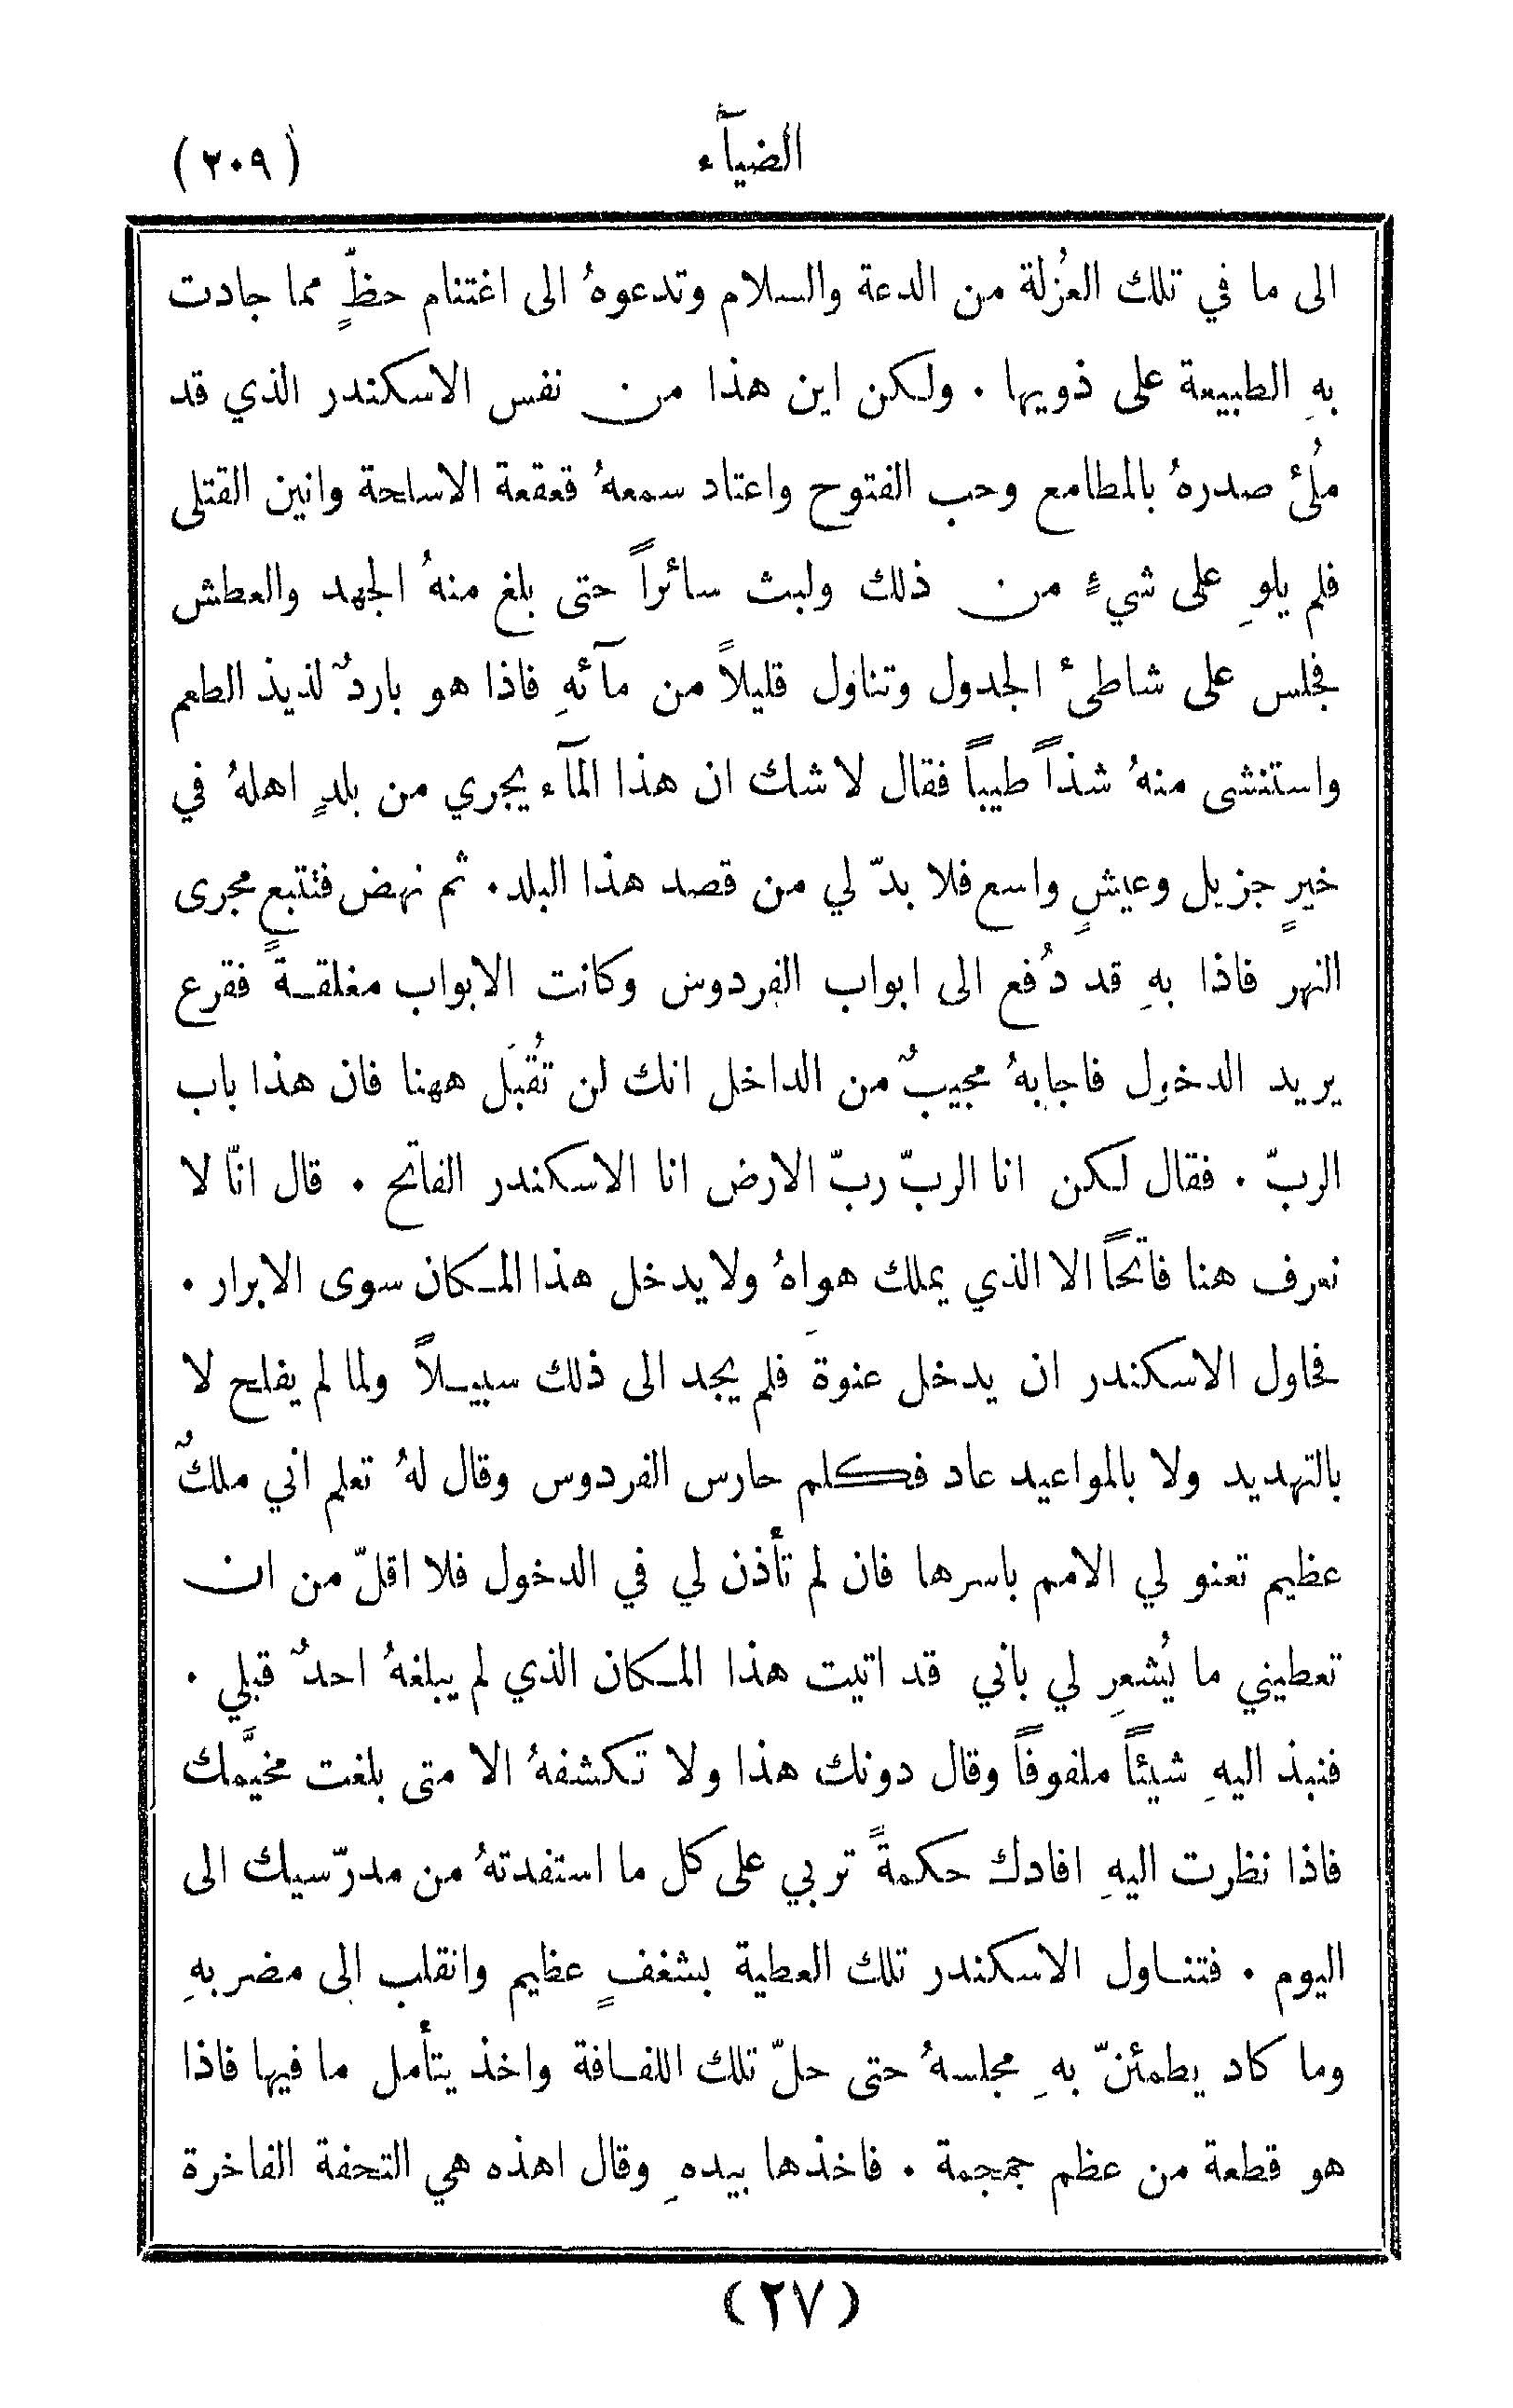 الضيآء
(٢٠٩)
الى ما في تلك العُزلة من الدعة والسلام وتدعوهُ الى اغتنام حظٍّ مما جادت
بهِ الطبيعة على ذويها ٠ ولكن اين هذا من نفس الاسكندر الذي قد
مُلئ صدرهُ بالمطامع وحب الفتوح واعتاد سمعهُ قعقعة الاسلحة وانين القتلى
فلم يلوِ على شيءٍ من ذلك ولبث سائراً حتى بلغ منهُ الجهد والعطش
فجلس على شاطئ الجدول وتناول قليلاً من مآئهِ فاذا هو باردٌ لذيذ الطعم
واستنشى منهُ شذاً طيباً فقال لا شك ان هذا المآء يجري من بلدٍ اهلهُ في
خيرٍ جزيل وعيشٍ واسع فلا بدّ لي من قصد هذا البلد ٠ ثم نهض فتتبع مجرى
النهر فاذا بهِ قد دُفع الى ابواب الفردوس وكانت الابواب مغلقـةً فقرع
يريد الدخول فاجابهُ مجيبٌ من الداخل انك لن تُقبَل ههنا فان هذا باب
الربّ ٠ فقال لكن انا الربّ ربّ الارض انا الاسكندر الفاتح ٠ قال انّا لا
نعرف هنا فاتحاً الا الذي يملك هواهُ ولا يدخل هذا المـكان سوى الابرار ٠
فحاول الاسكندر ان يدخل عنوةَ فلم يجد الى ذلك سبيـلاً ولما لم يفلح لا
بالتهديد ولا بالمواعيد عاد فكلم حارس الفردوس وقال لهُ تعلم اني ملكٌ
عظيم تعنو لي الامم باسرها فان لم تأذن لي في الدخول فلا اقلّ من ان
تعطيني ما يُشعرِ لي باني قد اتيت هذا المـكان الذي لم يبلغهُ احدٌ قبلي ٠
فنبذ اليهِ شيئاً ملفوفاً وقال دونك هذا ولا تكشفهُ الا متى بلغت مخيَّمك
فاذا نظرت اليهِ افادك حكمةً تربي على كل ما استفدتهُ من مدرّسيك الى
اليوم ٠ فتنـاول الاسكندر تلك العطية بشغفٍ عظيم وانقلب الى مضربهِ
وما كاد يطمئنّ بهِ مجلسهُ حتى حلّ تلك اللفـافة واخذ يتأمل ما فيها فاذا
هو قطعة من عظم جمجمة ٠ فاخذها بيدهِ وقال اهذه هي التحفة الفاخرة
(٢٧)